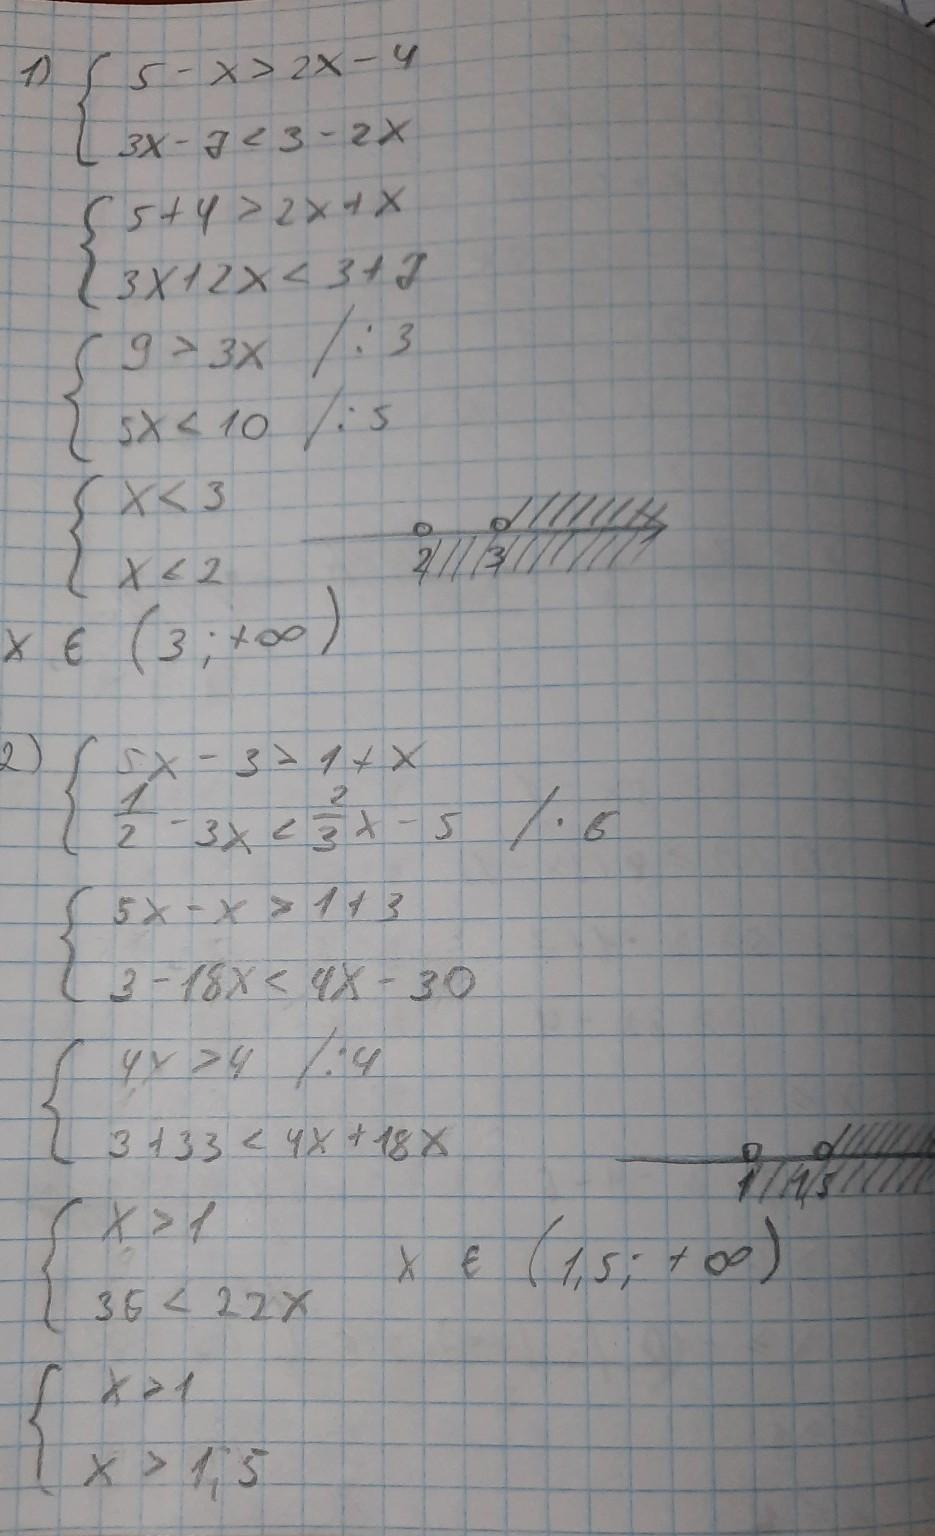 1) { 5 - x > 2x - 4
3x - 7 < 3 - 2x
{ 5 + 4 > 2x + x
3x + 2x < 3 + 7
{ 9 > 3x /: 3
5x < 10 /: 5
{ x < 3
x < 2
2 3
x ∈ (3; +∞)
2) { 5x - 3 > 1 + x
1/2 - 3x < 2/3 x - 5 /· 6
{ 5x - x > 1 + 3
3 - 18x < 4x - 30
{ 4x > 4 /: 4
3 + 33 < 4x + 18x
1 1,5
{ x > 1
36 < 22x
x ∈ (1,5; +∞)
{ x > 1
x > 1,5